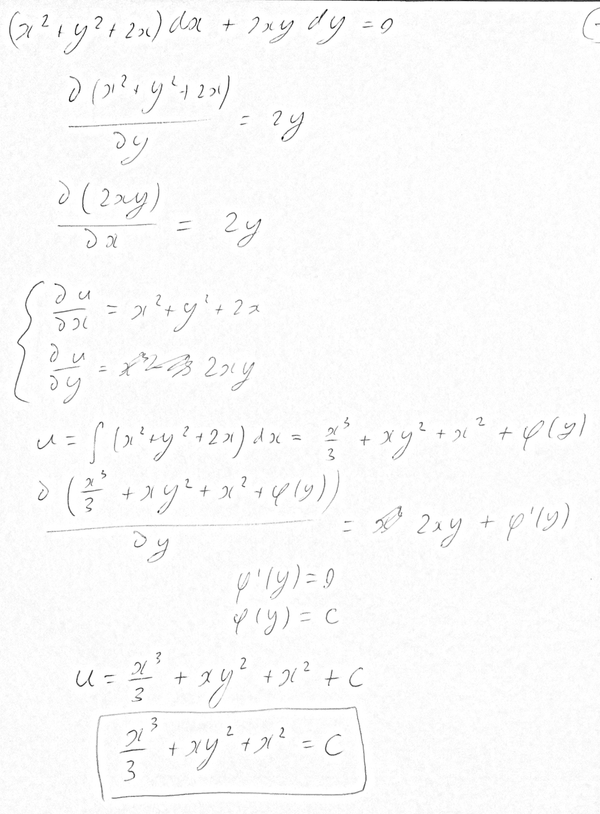 (x²+y²+2x)dx + 2xy dy = 0
∂(x²+y²+2x)/∂y = 2y
∂(2xy)/∂x = 2y
{ ∂u/∂x = x²+y²+2x
∂u/∂y = 2xy
u = ∫(x²+y²+2x)dx = x³/3 + xy² + x² + φ(y)
∂(x³/3 + xy² + x² + φ(y))/∂y = 2xy + φ'(y)
φ'(y) = 0
φ(y) = C
u = x³/3 + xy² + x² + C
x³/3 + xy² + x² = C